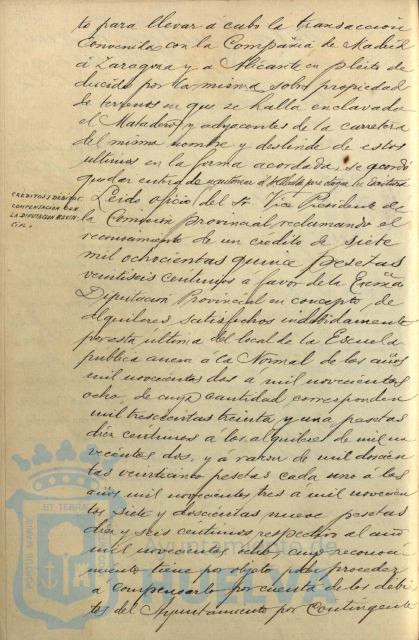 to para llevar a cabo la transacción
convenida con la Compañia de Madrid
á Zaragoza y a Alicante en pleito de
ducido por la misma sobre propiedad
de terrenos en que se halla enclavado
el Matadero y adyacentes de la carretera
del mismo nombre y deslinde de estos
ultimos en la forma acordada, se acordó
quedar enterado y autorizar al Alcalde para otorgar la escritura
CREDITOS Y DEBITOS.
COMPENSACION CON
LA DIPUTACION PROVIN-
CIAL.
Leido oficio del Sr. Vice Presidente de
la Comision Provincial reclamando el
reconocimiento de un credito de siete
mil ochocientas quince pesetas
veintiseis centimos á favor de la Excma
Diputación Provincial en concepto de
alquileres satisfechos indebidamente
por esta última del local de la Escuela
publica aneja á la Normal de los años
mil novecientos dos á mil novecientos
ocho, de cuya cantidad corresponden
mil trescientas treinta y una pesetas
diez centimos a los alquileres de mil no
vecientos dos, y á razon de mil doscien
tas veinticinco pesetas cada uno a los
años mil novecientos tres a mil novecien
tos siete y doscientas nueve pesetas
diez y seis centimos respecto al año
mil novecientos ocho, cuyo reconoci
miento tiene por objeto poder proceder
á compensarlo por cuenta de los debi
tos del Ayuntamiento por Contingente
PORTUS MARIS
ET TERRAE
Ayuntamiento de
HUELVA